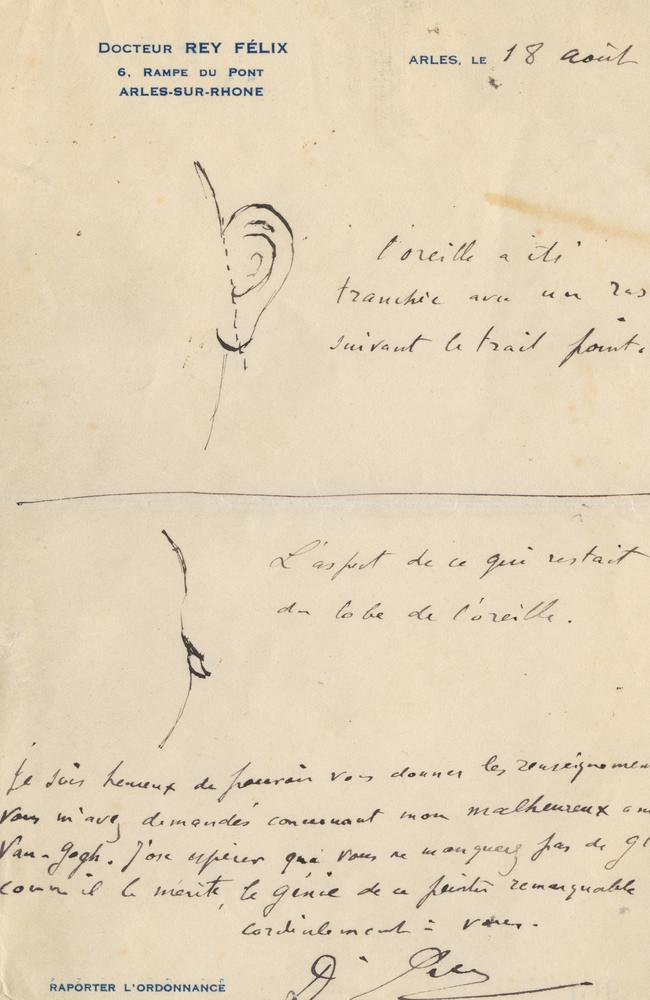 DOCTEUR REY FÉLIX
6, RAMPE DU PONT
ARLES-SUR-RHONE
ARLES, LE 18 août
l'oreille a été
tranchée avec un ras
suivant le trait point
L'aspect de ce qui restait
du lobe de l'oreille.
Je suis heureux de pouvoir vous donner les renseignemen
vous m'avez demandés concernant mon malheureux am
Van-Gogh. J'ose espérer que vous ne manquerez pas de gl
comme il le mérite, le génie de ce peintre remarquable
cordialement à vous.
Dr Rey
RAPORTER L'ORDONNANCE